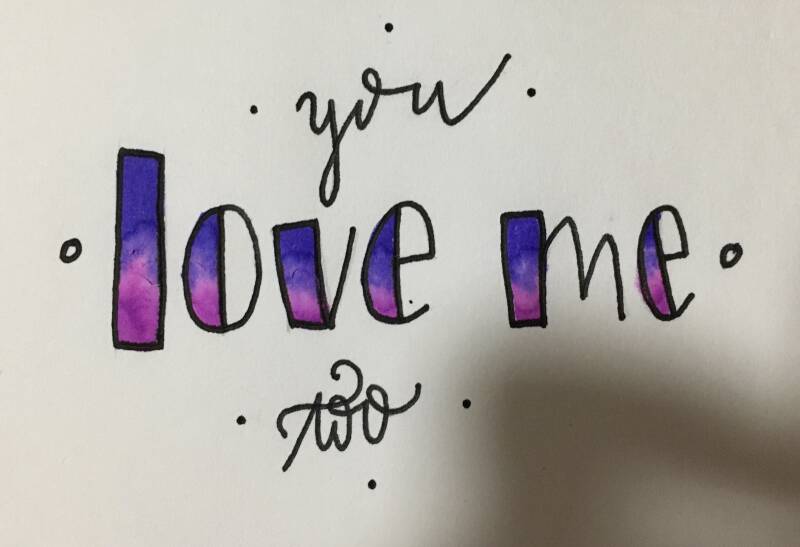 you
love me
too